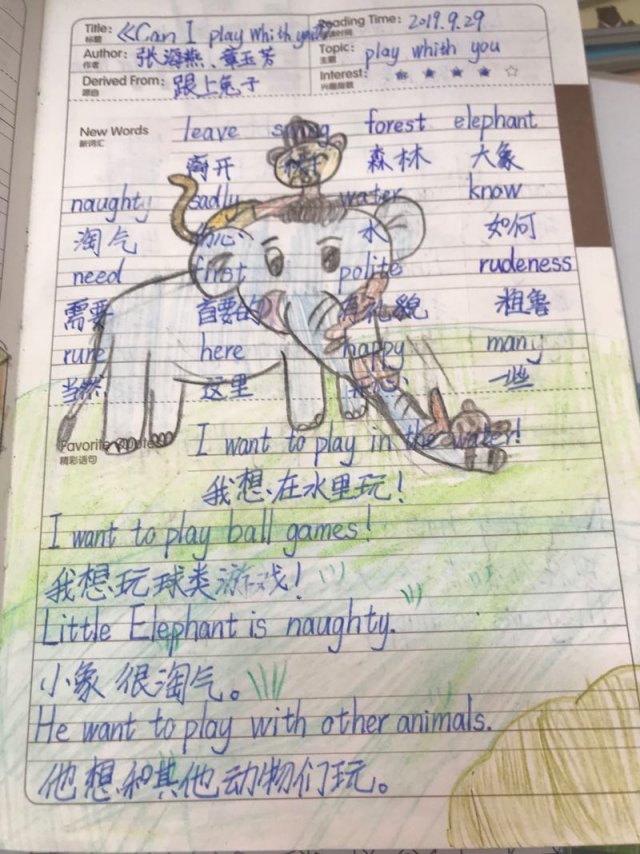 Title: 《Can I play whith you》 Reading Time: 2019.9.29
标题
Author: 张海燕、章玉芳 Topic: play whith you
作者 主题
Derived From: 跟上兔子 Interest:
源自 兴趣指数
New Words leave forest elephant
新词汇 离开 森林 大象
naughty sadly water know
淘气 伤心 水 如何
need first polite rudeness
需要 首要的 有礼貌 粗鲁
rure here happy many
当然 这里 开心 一些
Favorite I want to play in the water!
精彩语句
我想在水里玩！
I want to play ball games!
我想玩球类游戏！
Little Elephant is naughty.
小象很淘气。
He want to play with other animals.
他想和其他动物们玩。